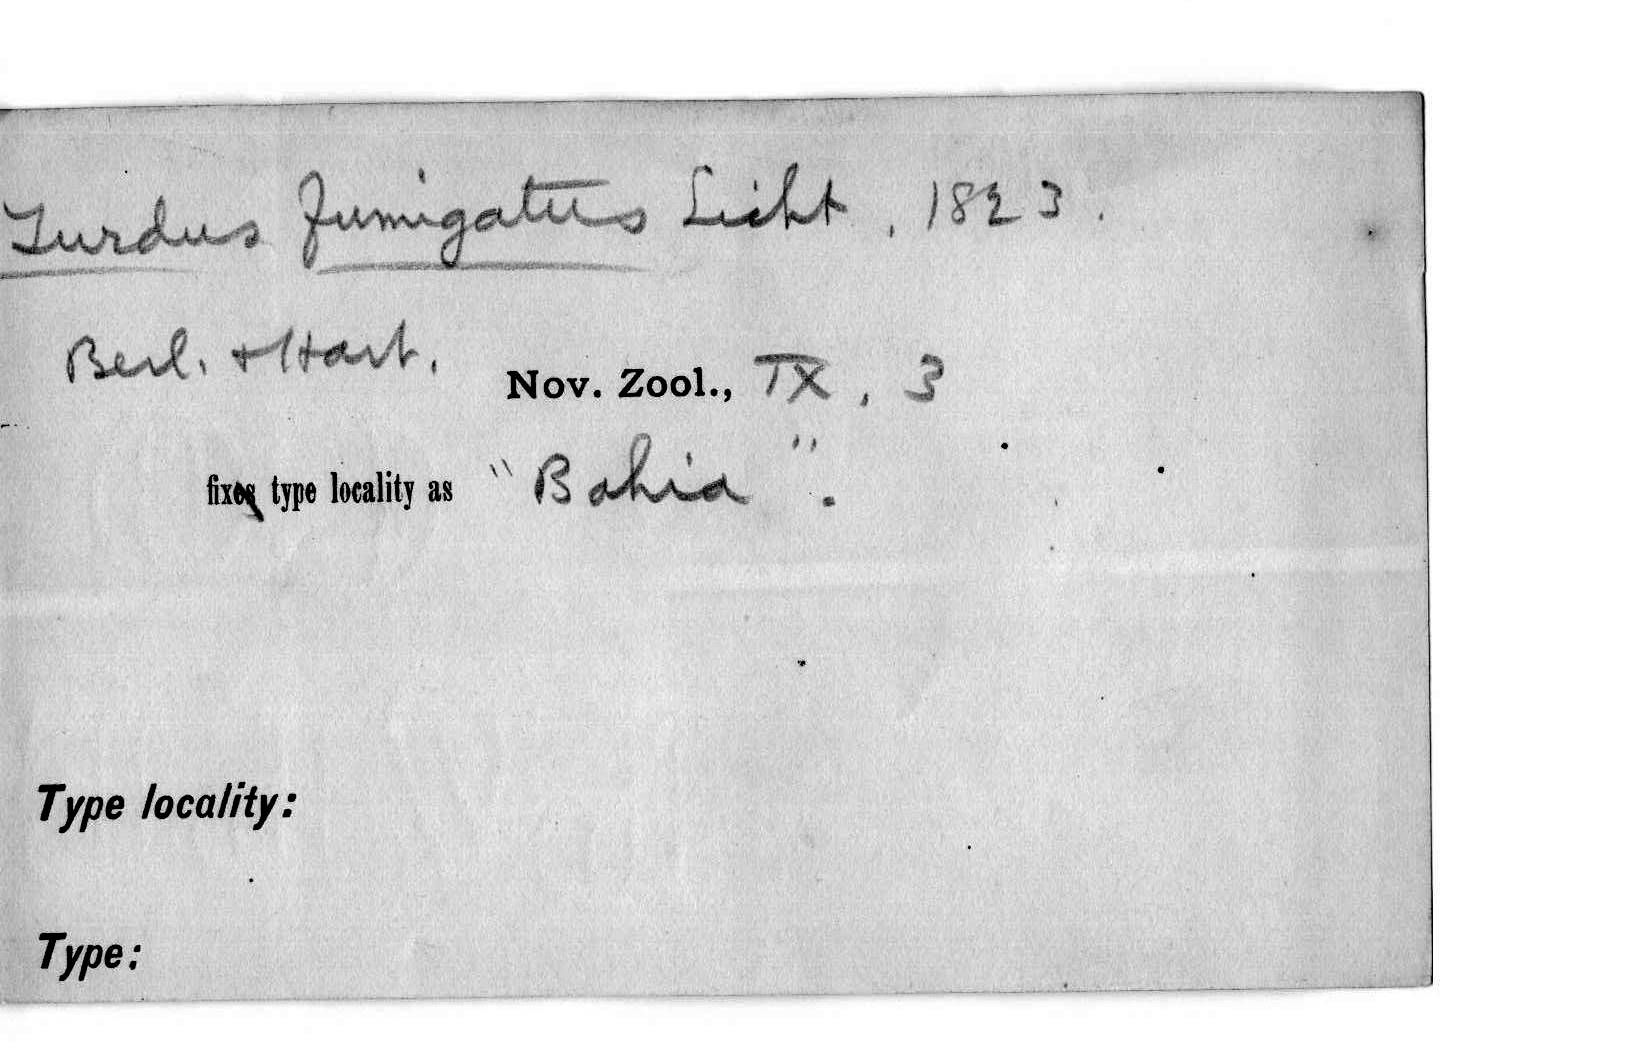 Turdus fumigatus Licht, 1823.
Berl. + Hart. Nov. Zool., IX, 3
fixes type locality as "Bahia".
Type locality:
Type: